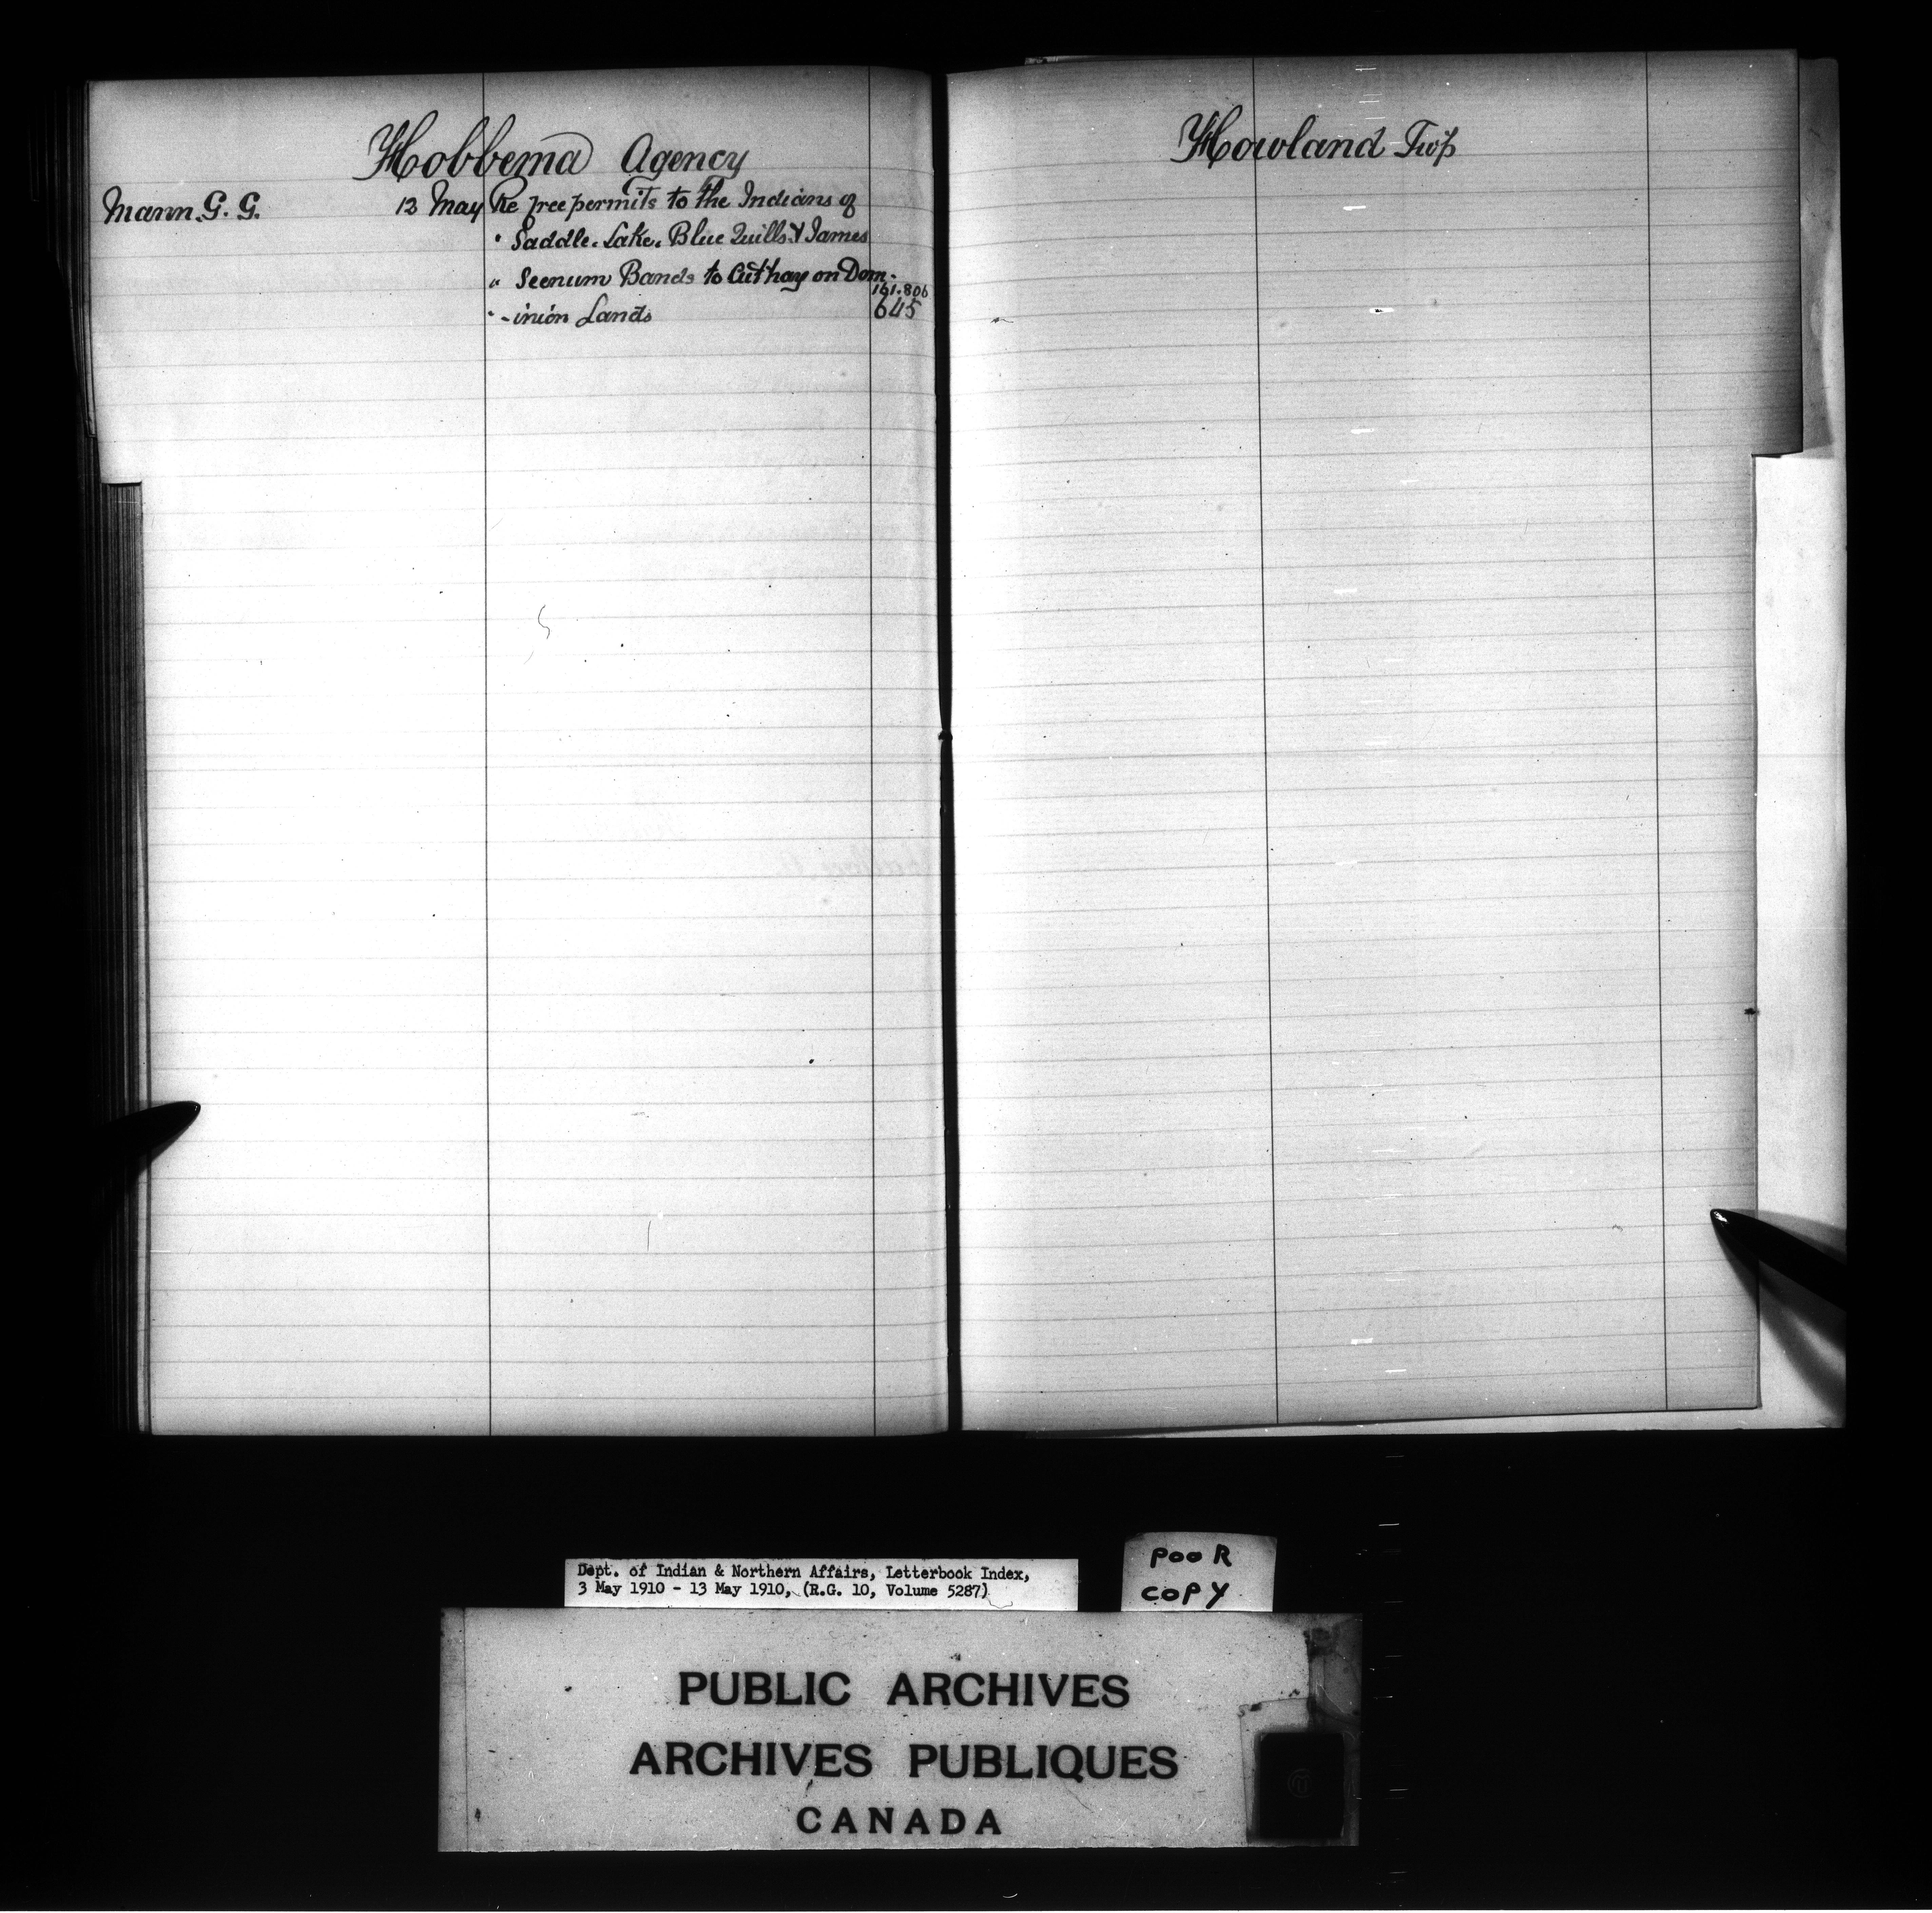 Hobbema Agency
Mann G. G. 12 May Re free permits to the Indians of
" Saddle Lake, Blue Quills & James
" Seenum Bands to Cut hay on Dom-
161.806
" -inion Lands 645
Howland Twp
Dept. of Indian & Northern Affairs, Letterbook Index,
3 May 1910 - 13 May 1910, (R.G. 10, Volume 5287)
POOR
COPY
PUBLIC ARCHIVES
ARCHIVES PUBLIQUES
CANADA